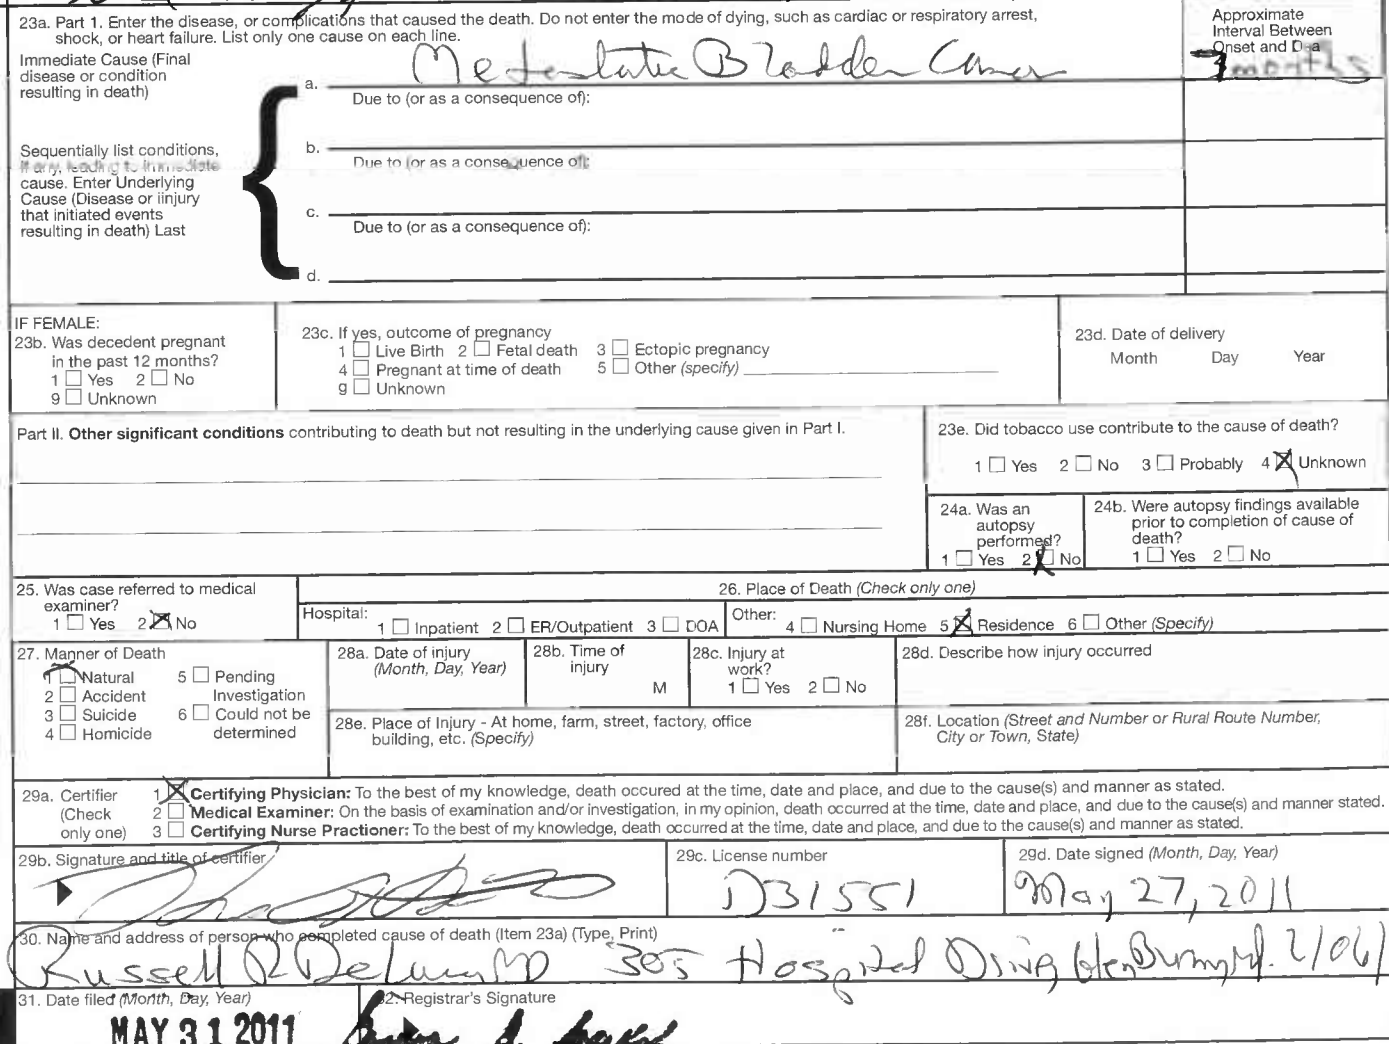 23a. Part 1. Enter the disease, or complications that caused the death. Do not enter the mode of dying, such as cardiac or respiratory arrest,
shock, or heart failure. List only one cause on each line.
Approximate
Interval Between
Onset and Dea
months
Immediate Cause (Final
disease or condition
resulting in death)
a. Metastatic Bladder Cancer
Due to (or as a consequence of):
Sequentially list conditions,
if any, leading to immediate
cause. Enter Underlying
Cause (Disease or iinjury
that initiated events
resulting in death) Last
b.
Due to (or as a consequence of):
c.
Due to (or as a consequence of):
d.
IF FEMALE:
23b. Was decedent pregnant
in the past 12 months?
1 ☐ Yes 2 ☐ No
9 ☐ Unknown
23c. If yes, outcome of pregnancy
1 ☐ Live Birth 2 ☐ Fetal death 3 ☐ Ectopic pregnancy
4 ☐ Pregnant at time of death 5 ☐ Other (specify)
9 ☐ Unknown
23d. Date of delivery
Month Day Year
Part II. Other significant conditions contributing to death but not resulting in the underlying cause given in Part I.
23e. Did tobacco use contribute to the cause of death?
1 ☐ Yes 2 ☐ No 3 ☐ Probably 4 ☒ Unknown
24a. Was an
autopsy
performed?
1 ☐ Yes 2 ☒ No
24b. Were autopsy findings available
prior to completion of cause of
death?
1 ☐ Yes 2 ☐ No
25. Was case referred to medical
examiner?
1 ☐ Yes 2 ☒ No
26. Place of Death (Check only one)
Hospital: 1 ☐ Inpatient 2 ☐ ER/Outpatient 3 ☐ DOA
Other: 4 ☐ Nursing Home 5 ☒ Residence 6 ☐ Other (Specify)
27. Manner of Death
1 ☒ Natural 5 ☐ Pending
2 ☐ Accident Investigation
3 ☐ Suicide 6 ☐ Could not be
4 ☐ Homicide determined
28a. Date of injury
(Month, Day, Year)
28b. Time of
injury
M
28c. Injury at
work?
1 ☐ Yes 2 ☐ No
28d. Describe how injury occurred
28e. Place of Injury - At home, farm, street, factory, office
building, etc. (Specify)
28f. Location (Street and Number or Rural Route Number,
City or Town, State)
29a. Certifier
(Check
only one)
1 ☒ Certifying Physician: To the best of my knowledge, death occured at the time, date and place, and due to the cause(s) and manner as stated.
2 ☐ Medical Examiner: On the basis of examination and/or investigation, in my opinion, death occurred at the time, date and place, and due to the cause(s) and manner stated.
3 ☐ Certifying Nurse Practioner: To the best of my knowledge, death occurred at the time, date and place, and due to the cause(s) and manner as stated.
29b. Signature and title of certifier
29c. License number
D31551
29d. Date signed (Month, Day, Year)
May 27, 2011
30. Name and address of person who completed cause of death (Item 23a) (Type, Print)
Russell R DeLuca MD 305 Hospital Drive Glen Burnie Md. 21061
31. Date filed (Month, Day, Year)
MAY 31 2011
32. Registrar's Signature